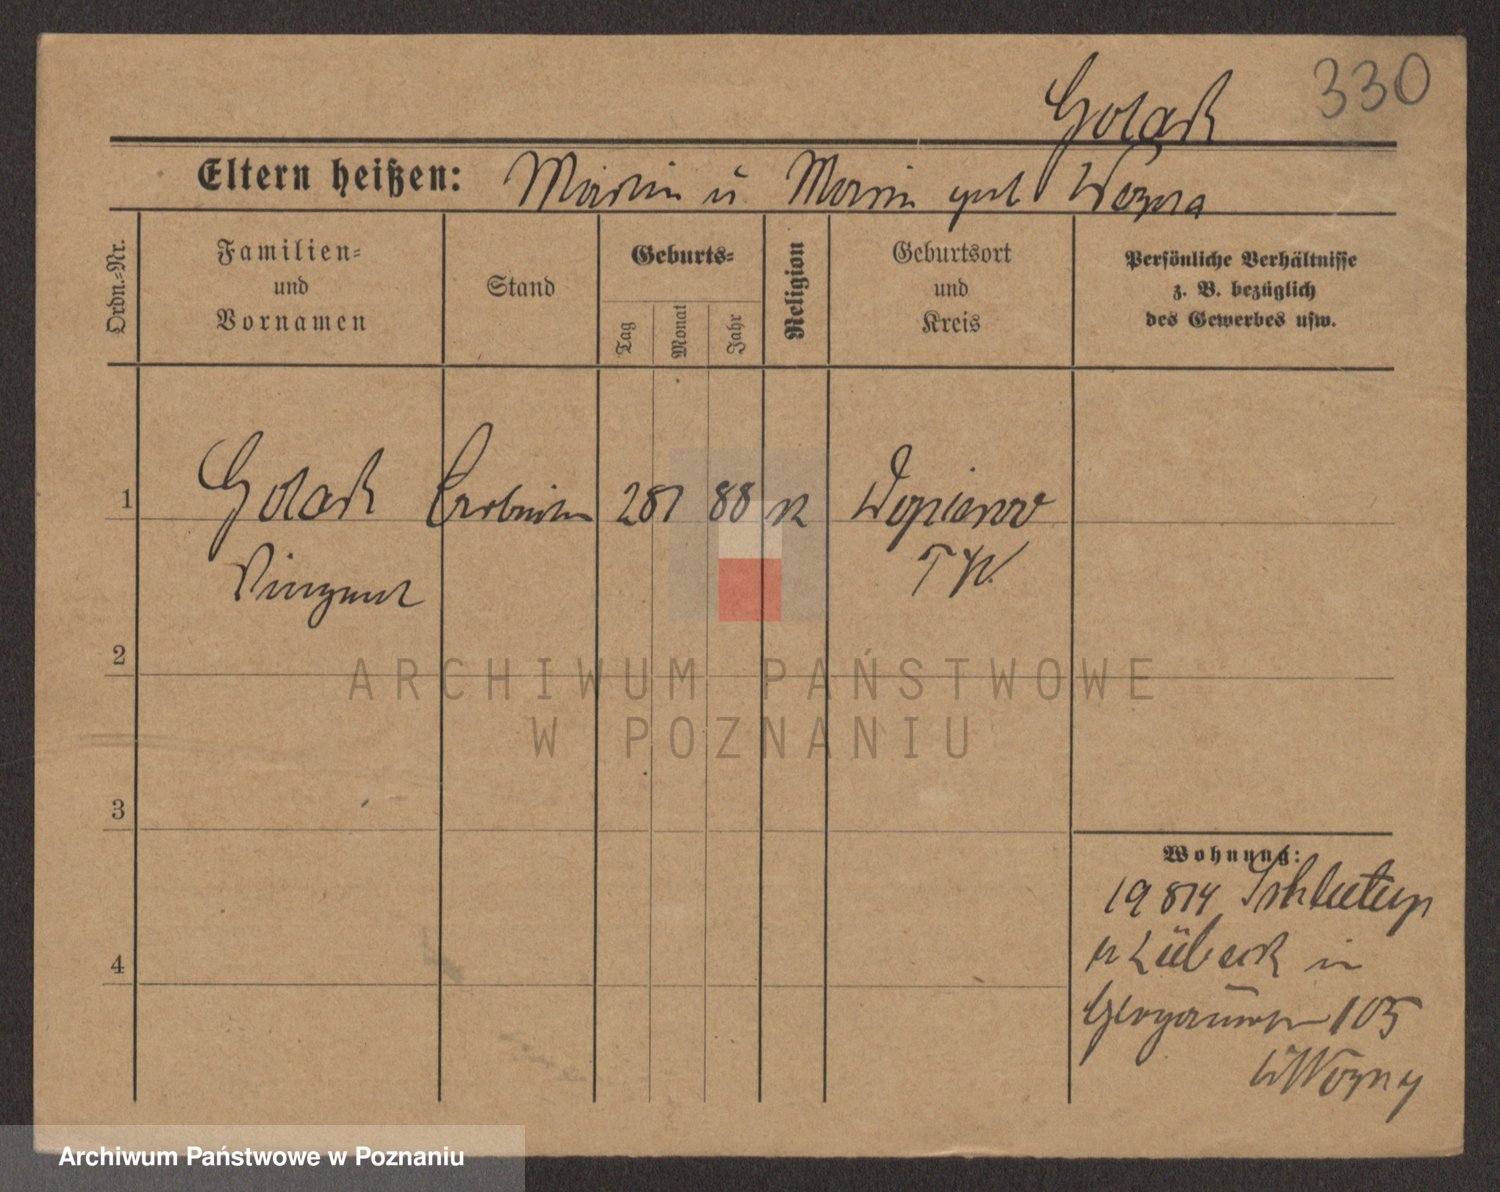 330
Golak
Eltern heißen: Martin u Marie geb Wozna
Ordn.-Nr.
Familien-
und
Vornamen
Stand
Geburts-
Tag
Monat
Jahr
Religion
Geburtsort
und
Kreis
Persönliche Verhältnisse
z. B. bezüglich
des Gewerbes usw.
1 Golak Arbeiter 28 1 88 K
Vinzent
2
ARCHIWUM PAŃSTWOWE
W POZNANIU
3
4
Wohnung:
19 8 14 Schlutup
Lübeck in
105
Wozny
Archiwum Państwowe w Poznaniu